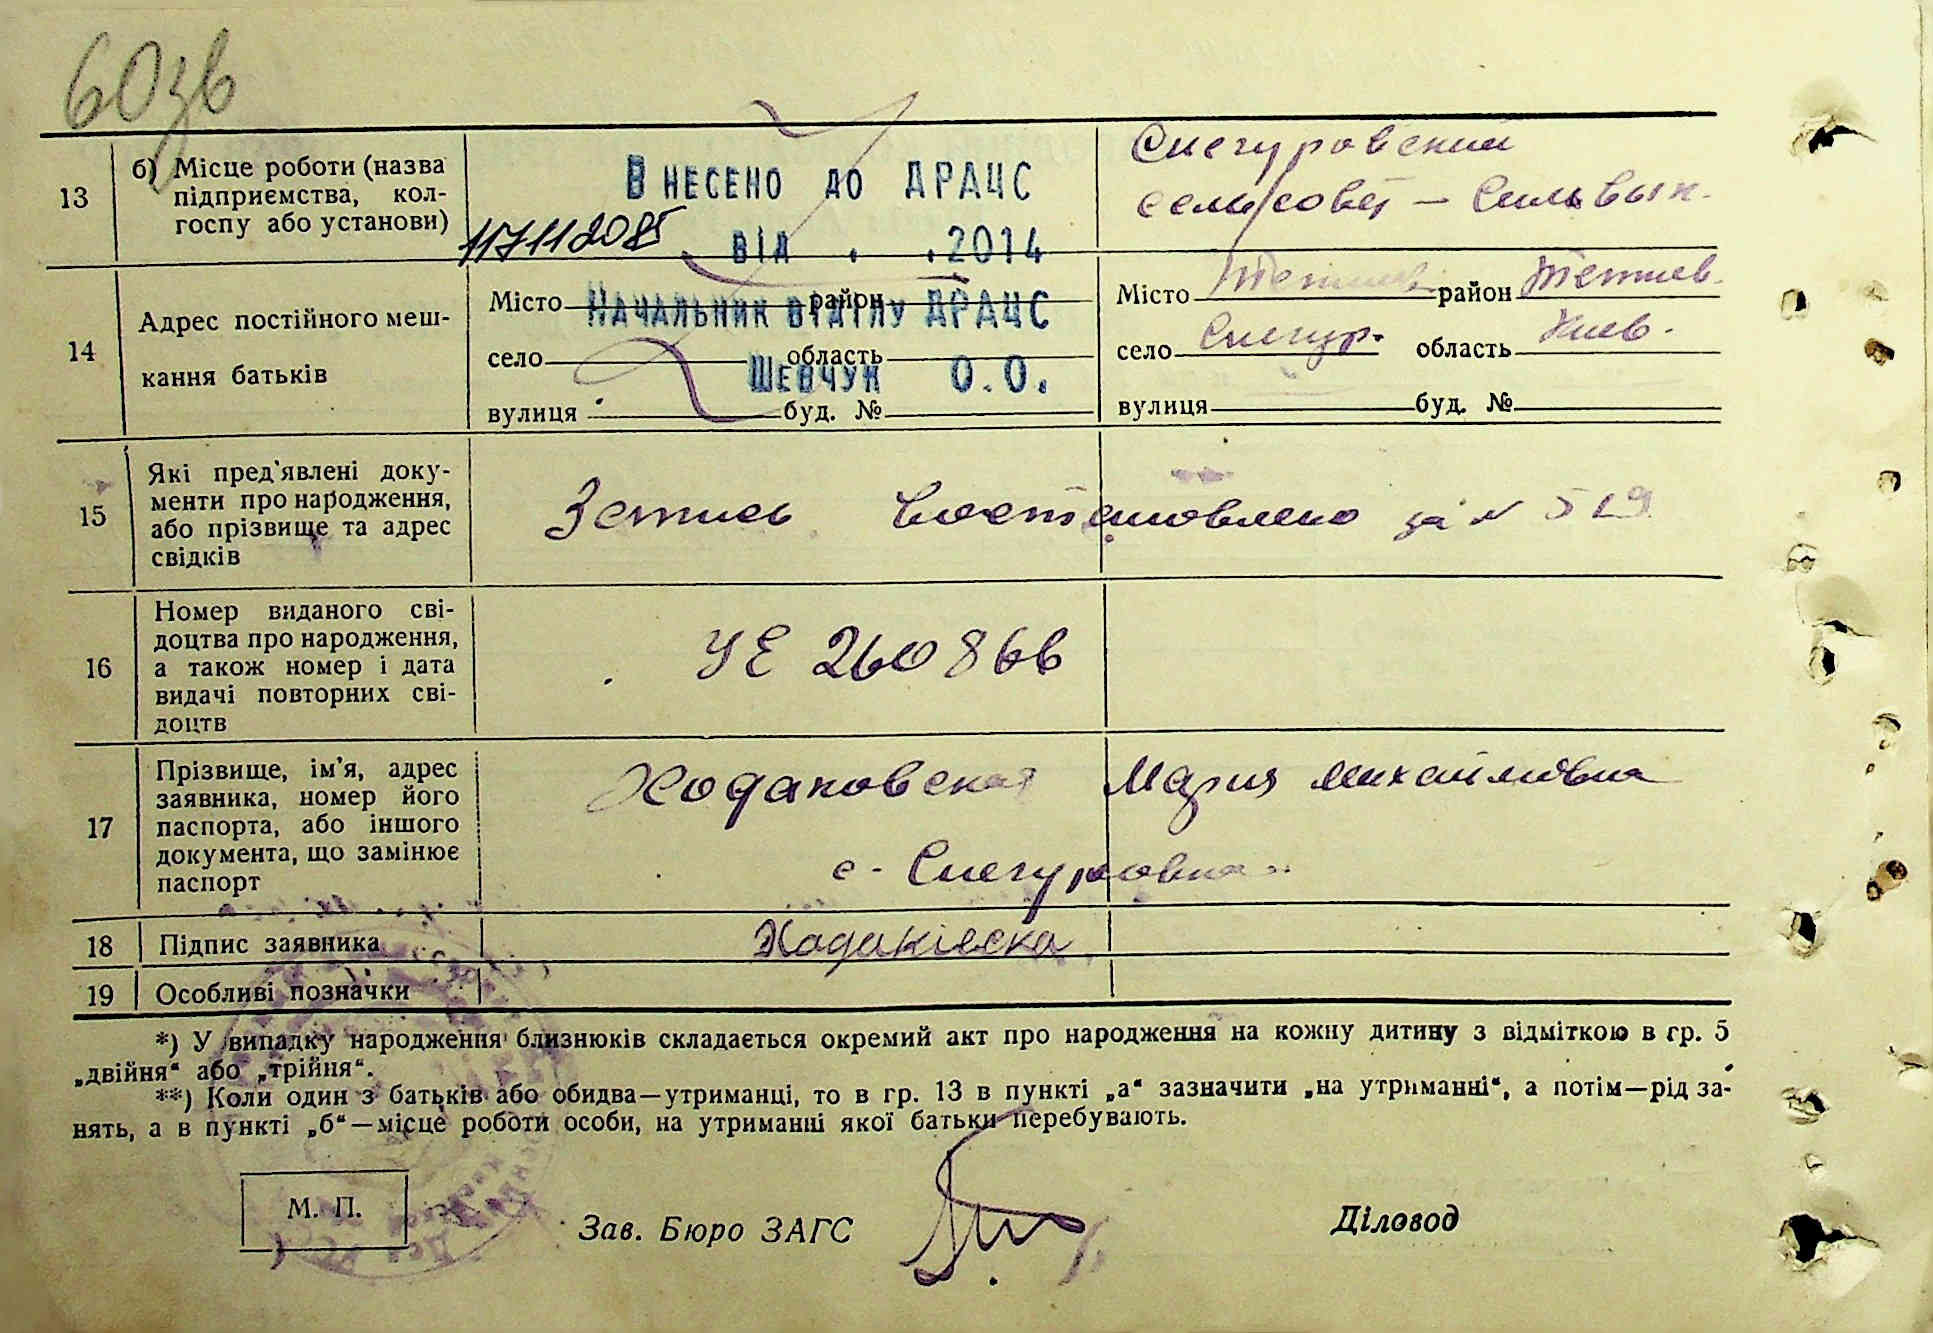 60зв
13 б) Місце роботи (назва підприємства, кол-
госпу або установи)
ВНЕСЕНО ДО ДРАЦС
ВІД . .2014
НАЧАЛЬНИК ВІДІЛУ ДРАЦС
ШЕВЧУК О.О.
Снегуровский
сельсовет —
14 Адрес постійного меш-
кання батьків
Місто район
село область
вулиця буд. №
Місто Тетиев район Тетиев.
село Снегур. область Киев.
вулиця буд. №
15 Які пред'явлені доку-
менти про народження,
або прізвище та адрес
свідків
за № 519
16 Номер виданого сві-
доцтва про народження,
а також номер і дата
видачі повторних сві-
доцтв
УЕ 260866
17 Прізвище, ім'я, адрес
заявника, номер його
паспорта, або іншого
документа, що замінює
паспорт
Ходаковская Мария Михайловна
с. Снегуровка
18 Підпис заявника
19 Особливі позначки
*) У випадку народження близнюків складається окремий акт про народження на кожну дитину з відміткою в гр. 5
„двійня“ або „трійня“.
**) Коли один з батьків або обидва—утриманці, то в гр. 13 в пункті „а“ зазначити „на утриманні“, а потім—рід за-
нять, а в пункті „б“—місце роботи особи, на утриманні якої батьки перебувають.
М. П.
Зав. Бюро ЗАГС
Діловод